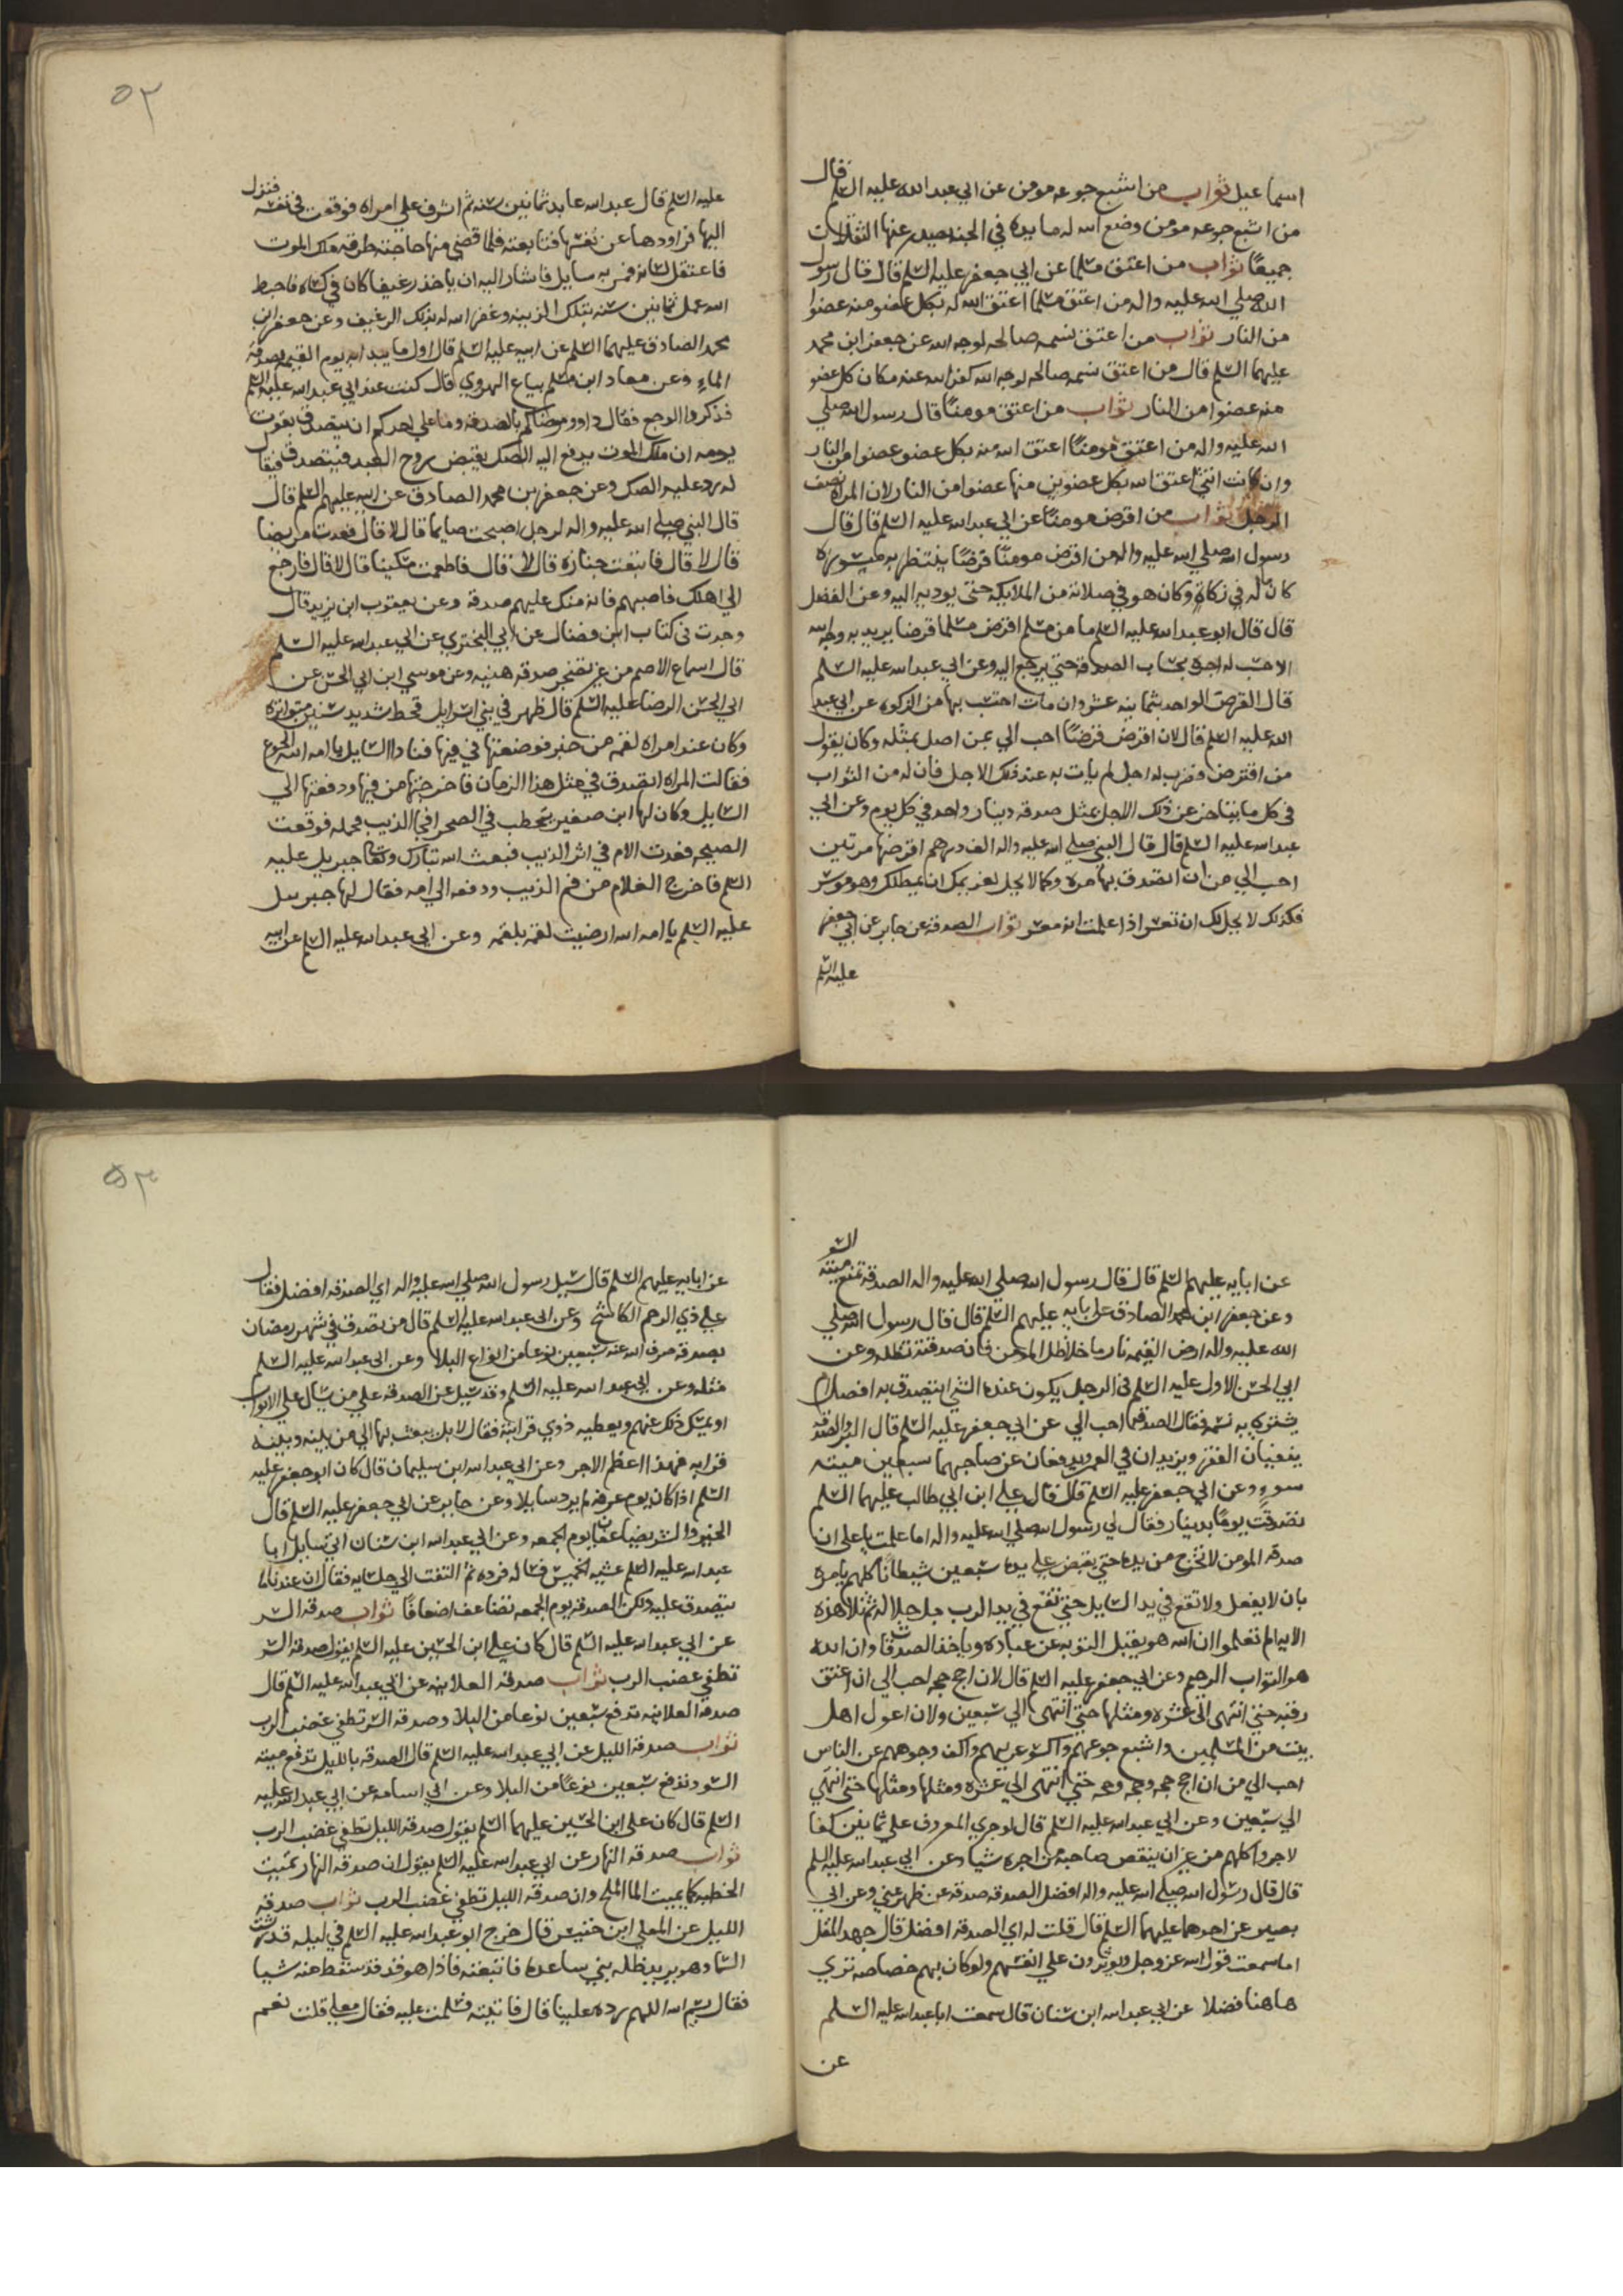 اسماعيل ثواب من اشبع جوعه مومن عن ابي عبد الله عليه السلم قال
من اشبع جوعه مومن وضع الله له مايده في الجنه يصدر عنها الثقلان
جميعًا ثواب من اعتق مسلما عن ابي جعفر عليه السلم قال قال رسول
الله صلي الله عليه واله من اعتق مسلما اعتق الله له بكل عضو منه عضوا
من النار ثواب من اعتق نسمه صالحه لوجه الله عن جعفر ابن محمد
عليهما السلم قال من اعتق نسمه صالحه لوجه الله كفر الله عنه مكان كل عضو
منه عضوا من النار ثواب من اعتق مومنًا قال رسول الله صلي
الله عليه واله من اعتق مومنًا اعتق الله منه بكل عضو عضوا من النار
وان كانت انثي اعتق الله بكل عضوين منها عضوا من النار لان المراه نصف
الرجل ثواب من اقرض مومنًا عن ابي عبد الله عليه السلم قال قال
رسول الله صلي الله عليه واله من اقرض مومنًا قرضًا ينتظر به ميسوره
كان ماله في زكاة وكان هو في صلاته من الملايكه حتي يوديه اليه وعن الفضل
قال قال ابو عبد الله عليه السلم ما من مسلم اقرض مسلما قرضا يريد به وجه الله
الا حسب له اجره بحساب الصدقه حتي يرجع اليه وعن ابي عبد الله عليه السلم
قال القرض الواحد بثمانيه عشر وان مات احتسب بها من الزكوه عن ابي عبد
الله عليه السلم قال لان اقرض قرضًا احب الي من اصل بمثله وكان يقول
من اقترض وضرب له اجل لم يات به عند ذلك الاجل فان له من الثواب
في كل ما يتاخر عن ذلك الاجل بمثل صدقه دينار واحد في كل يوم وعن ابي
عبد الله عليه السلم قال قال النبي صلي الله عليه واله الف درهم اقرضها مرتين
احب الي من ان اتصدق بها مره وكما لا يحل لغريمك ان يمطلك وهو موسر
فكذلك لا يحل لك ان تعسر اذا علمت انه معسر ثواب الصدقه عن جابر عن ابي جعفر
عليه السلم
٥٢
عليه السلم قال عبد الله عابد ثمانين سنه ثم اشرف علي امراه فوقعت في نفسه فنزل
اليها فراودها عن نفسها فتابعته فلما قضي منها حاجته طرقه ملك الموت
فاعتقل لسانه فمر به سايل فاشار اليه ان ياخذ رغيفا كان في كسائه فاحبط
الله عمل ثمانين سنه بتلك الزنيه وغفر الله له بذلك الرغيف وعن جعفر ابن
محمد الصادق عليهما السلم عن ابيه عليه السلم قال اول ما يبدا به يوم القيمه بصدقه
الماء وعن معاد ابن مسلم بياع الهروي قال كنت عند ابي عبد الله عليه السلم
فذكروا الوجع فقال داووا مرضاكم بالصدقه وما علي احدكم ان يتصدق بقوت
يومه ان ملك الموت يدفع اليه الصك بقبض روح العبد فيتصدق فيقال
له رد عليه الصك وعن جعفر بن محمد الصادق عن ابيه عليهم السلم قال
قال النبي صلي الله عليه واله لرجل اصبحت صايما قال لا قال فعدت مريضا
قال لا قال فاتبعت جنازه قال لا قال فاطعمت مسكينا قال لا قال فارجع
الي اهلك فاصبهم فانه منك عليهم صدقه وعن يعقوب ابن يزيد قال
وجدت في كتاب ابن فضال عن ابي البختري عن ابي عبد الله عليه السلم
قال اسماع الاصم من غير تضجر صدقه هنيه وعن موسي ابن ابي الحسن عن
ابي الحسن الرضا عليه السلم قال ظهر في بني اسرايل قحط شديد سنين متواتره
وكان عند امراه لقمه من خبز فوضعتها في فيها فنادا السايل يا امه الله الجوع
فقالت المراه اتصدق في مثل هذا الزمان فاخرجتها من فيها ودفعتها الي
السايل وكان لها ابن صغير يتحطب في الصحرا فجا الذيب فحمله فوقعت
الصيحه فغدت الام في اثر الذيب فبعث الله تبارك وتعالي جبريل عليه
السلم فاخرج الغلام من فم الذيب ودفعه الي امه فقال لها جبريل
عليه السلم يا امه الله ارضيت لقمه بلقمه وعن ابي عبد الله عليه السلم عن ابيه
عن ابايه عليهم السلم قال قال رسول الله صلي الله عليه واله الصدقه تمنع ميته السو
وعن جعفر ابن محمد الصادق عن ابايه عليهم السلم قال قال رسول الله صلي
الله عليه واله ارض القيمه نار ما خلا ظل المومن فان صدقته تظله وعن
ابي الحسن الاول عليه السلم في الرجل يكون عنده الشي ايتصدق به افضل ام
يشتري به نسمه فقال الصدقه احب الي عن ابي جعفر عليه السلم قال البر والصدقه
ينفيان الفقر ويزيدان في العمر ويدفعان عن صاحبهما سبعين ميته
سوء وعن ابي جعفر عليه السلم قال قال علي ابن ابي طالب عليهما السلم
تصدقت يومًا بدينار فقال لي رسول الله صلي الله عليه واله اما علمت يا علي ان
صدقه المومن لا تخرج من يده حتي يقبض علي يده سبعين شيطانًا كلهم يامره
بان لا يفعل ولا تقع في يد السايل حتي تقع في يد الرب جل جلاله ثم تلا هذه
الايه الم تعلموا ان الله هو يقبل التوبه عن عباده وياخذ الصدقات وان الله
هو التواب الرحيم وعن ابي جعفر عليه السلم قال لان احج حجه احب الي ان اعتق
رقبه حتي انتهي الي عشره ومثلها حتي انتهي الي سبعين ولان اعول اهل
بيت من المسلمين واشبع جوعهم واكسو عريهم واكف وجوههم عن الناس
احب الي من ان احج حجه وحجه وحجه حتي انتهي الي عشره ومثلها ومثلها حتي انتهي
الي سبعين وعن ابي عبد الله عليه السلم قال لو جري المعروف علي ثمانين كفا
لاجروا كلهم من غير ان ينقص صاحبه من اجره شيا وعن ابي عبد الله عليه السلم
قال قال رسول الله صلي الله عليه واله افضل الصدقه صدقه عن ظهر غني وعن ابي
بصير عن احدهما عليهما السلم قال قلت له اي الصدقه افضل قال جهد المقل
اما سمعت قول الله عز وجل ويوثرون علي انفسهم ولو كان بهم خصاصه تري
هاهنا فضلا عن ابي عبد الله ابن سنان قال سمعت ابا عبد الله عليه السلم
عن
٥٣
عن ابايه عليهم السلم قال سيل رسول الله صلي الله عليه واله اي الصدقه افضل فقال
علي ذي الرحم الكاشح وعن ابي عبد الله عليه السلم قال من تصدق في شهر رمضان
بصدقه صرف الله عنه سبعين نوعا من انواع البلا وعن ابي عبد الله عليه السلم
مثله وعن ابي عبد الله عليه السلم وقد سيل عن الصدقه علي من يسال علي الابواب
او يمسك ذلك عنهم ويعطيه ذوي قرابته فقال لا بل يبعث بها الي من بينه وبينه
قرابه فهذا اعظم الاجر وعن ابي عبد الله ابن سليمان قال كان ابو جعفر عليه
السلم اذا كان يوم عرفه لم يرد سايلا وعن جابر عن ابي جعفر عليه السلم قال
الخير والشر يضاعفان يوم الجمعه وعن ابي عبد الله ابن سنان اتي سايل ابا
عبد الله عليه السلم عشيه الخميس فساله فرده ثم التفت الي جلسايه فقال ان عندنا ما
يتصدق عليه ولكن الصدقه يوم الجمعه تضاعف اضعافًا ثواب صدقه السر
عن ابي عبد الله عليه السلم قال كان علي ابن الحسين عليه السلم يقول صدقه السر
تطفي غضب الرب ثواب صدقه العلانيه عن ابي عبد الله عليه السلم قال
صدقه العلانيه تدفع سبعين نوعا من البلا وصدقه السر تطفي غضب الرب
ثواب صدقه الليل عن ابي عبد الله عليه السلم قال الصدقه بالليل تدفع ميته
السو وتدفع سبعين نوعًا من البلا وعن ابي اسامه عن ابي عبد الله عليه
السلم قال كان علي ابن الحسين عليهما السلم يقول صدقه الليل تطفي غضب الرب
ثواب صدقه النهار عن ابي عبد الله عليه السلم يقول ان صدقه النهار تميت
الخطيه كما يميت الما الملح وان صدقه الليل تطفي غضب الرب ثواب صدقه
الليل عن المعلي ابن خنيس قال خرج ابو عبد الله عليه السلم في ليله قد رشت
السما وهو يريد ظله بني ساعده فاتبعته فاذا هو قد سقط عنه شيا
فقال بسم الله اللهم رده علينا قال فاتيته فسلمت عليه فقال معلي قلت نعم